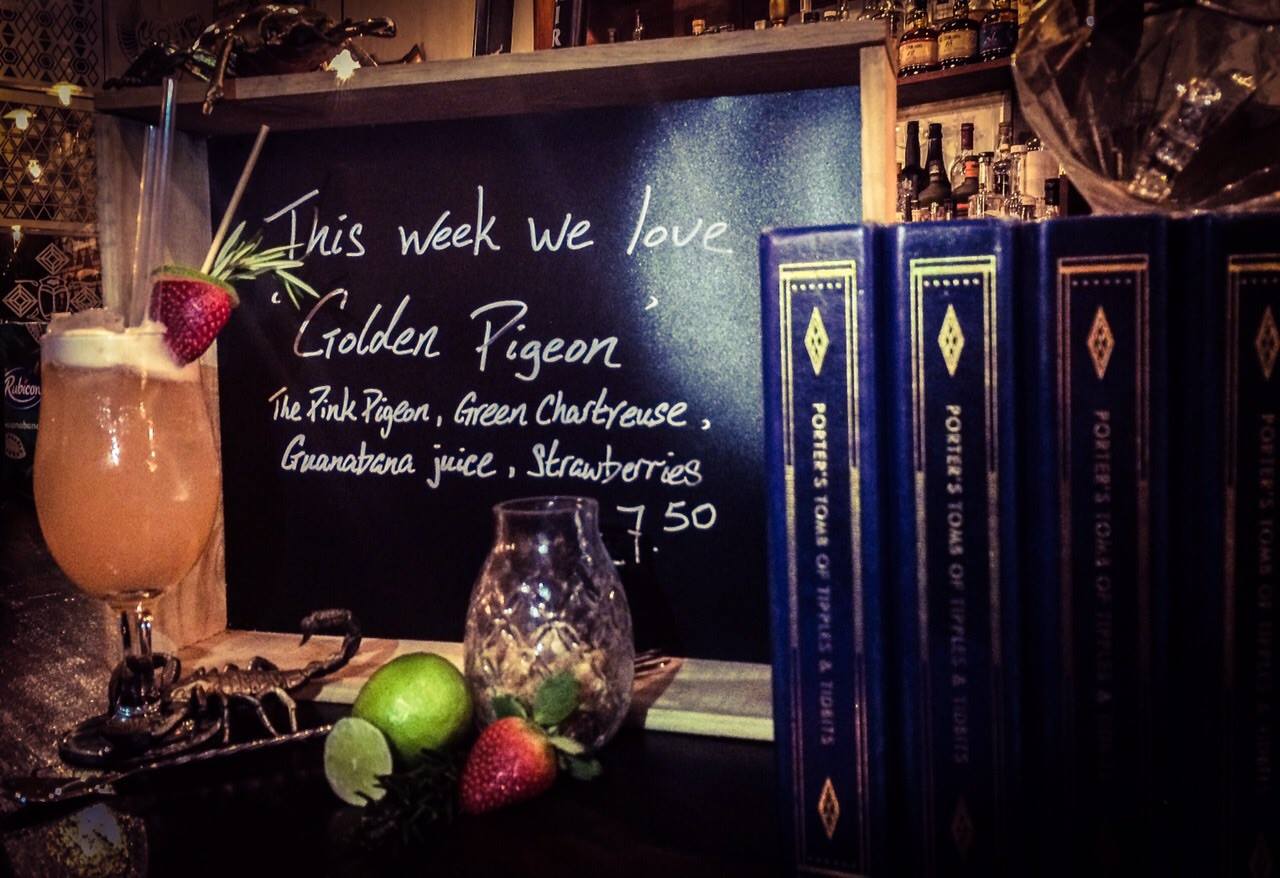 This week we love
'Golden Pigeon'
The Pink Pigeon, Green Chartreuse,
Guanabana juice, Strawberries
7.50
Rubicon
guanabana
PORTER'S TOMB OF TIPPLES & TIDBITS
PORTER'S TOMB OF TIPPLES & TIDBITS
PORTER'S TOMB OF TIPPLES &
PORTER'S TOMB OF TIPPLES &